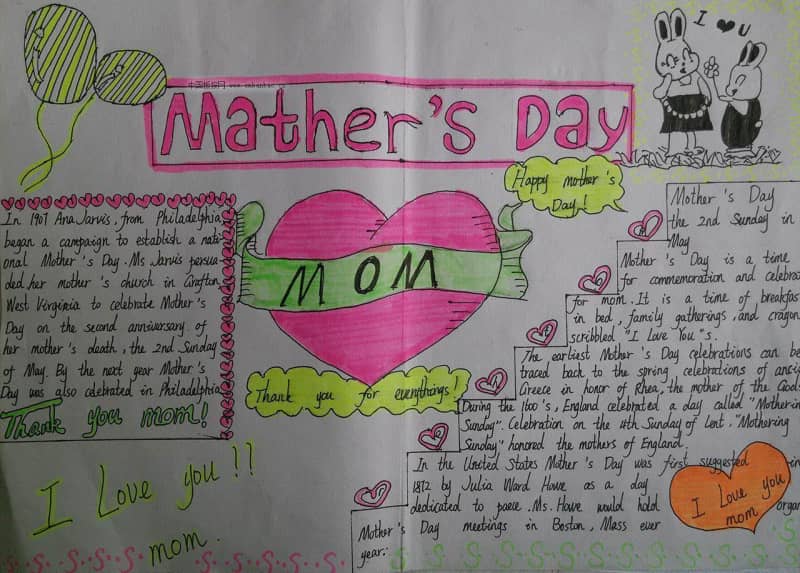 I ❤ U
中国板报网 www.canbantao.cc
Mather's Day
Happy mother's
Day!
In 1907 Ana Jarvis, from Philadelphia,
began a campaign to establish a nati
onal Mother's Day. Ms Jarvis persua
ded her mother's church in Grafton,
West Virginia to celebrate Mother's
Day on the second anniversary of
her mother's death, the 2nd Sunday
of May. By the next year Mother's
Day was also celebrated in Philadelphia
Thank you mom!
MOM
Thank you for everythings!
I Love you!!
mom.
Mother's Day
the 2nd Sunday in
May
Mother's Day is a time
for commemoration and celebrat
for mom. It is a time of breakfas
in bed, family gatherings, and crayon
scribbled "I Love You"s.
The earliest Mother's Day celebrations can be
traced back to the spring celebrations of ancie
Greece in honor of Rhea, the mother of the Gods
During the 1600's, England celebrated a day called "Mothering
Sunday". Celebration on the 4th Sunday of Lent. "Mothering
Sunday" honored the mothers of England.
In the United States Mother's Day was first suggested in
1872 by Julia Ward Howe as a day
dedicated to paece. Ms. Howe would hold organ
Mother's Day meetings in Boston, Mass ever
year.
I Love you
mom